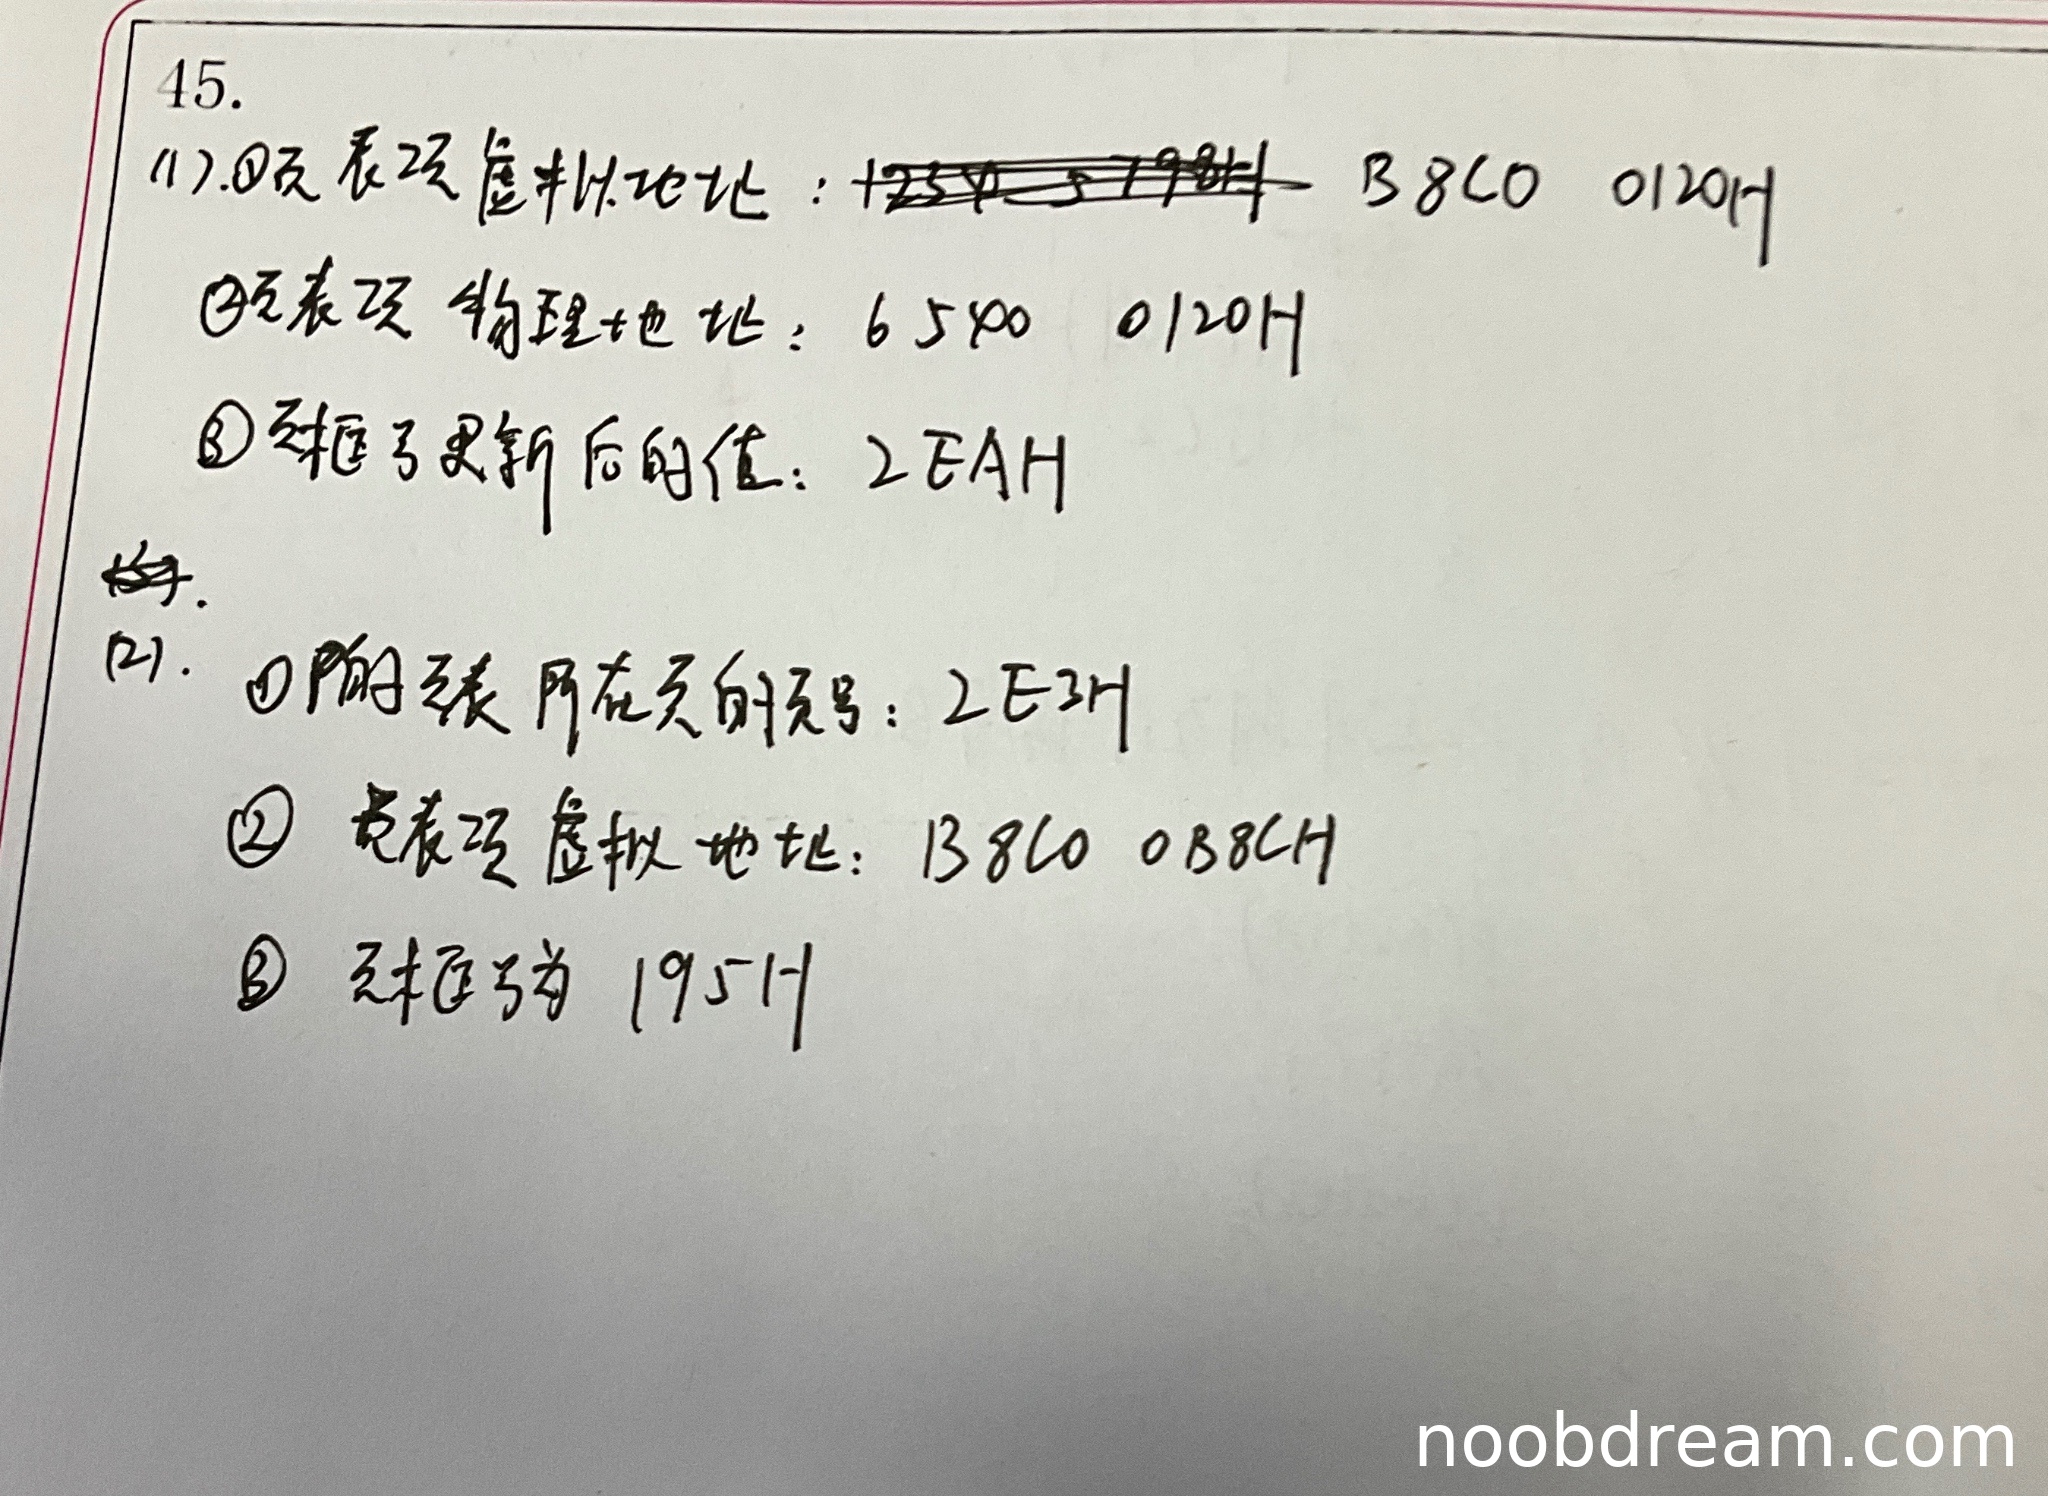 45.
(1).①页表项虚拟地址: B8C0 0120H
②页表项物理地址: 6540 0120H
③页框号更新后的值: 2EAH
(2). ①P的页表所在页的页号: 2E3H
② 页表项虚拟地址: B8C0 0B8CH
③ 页框号为 195H
noobdream.com